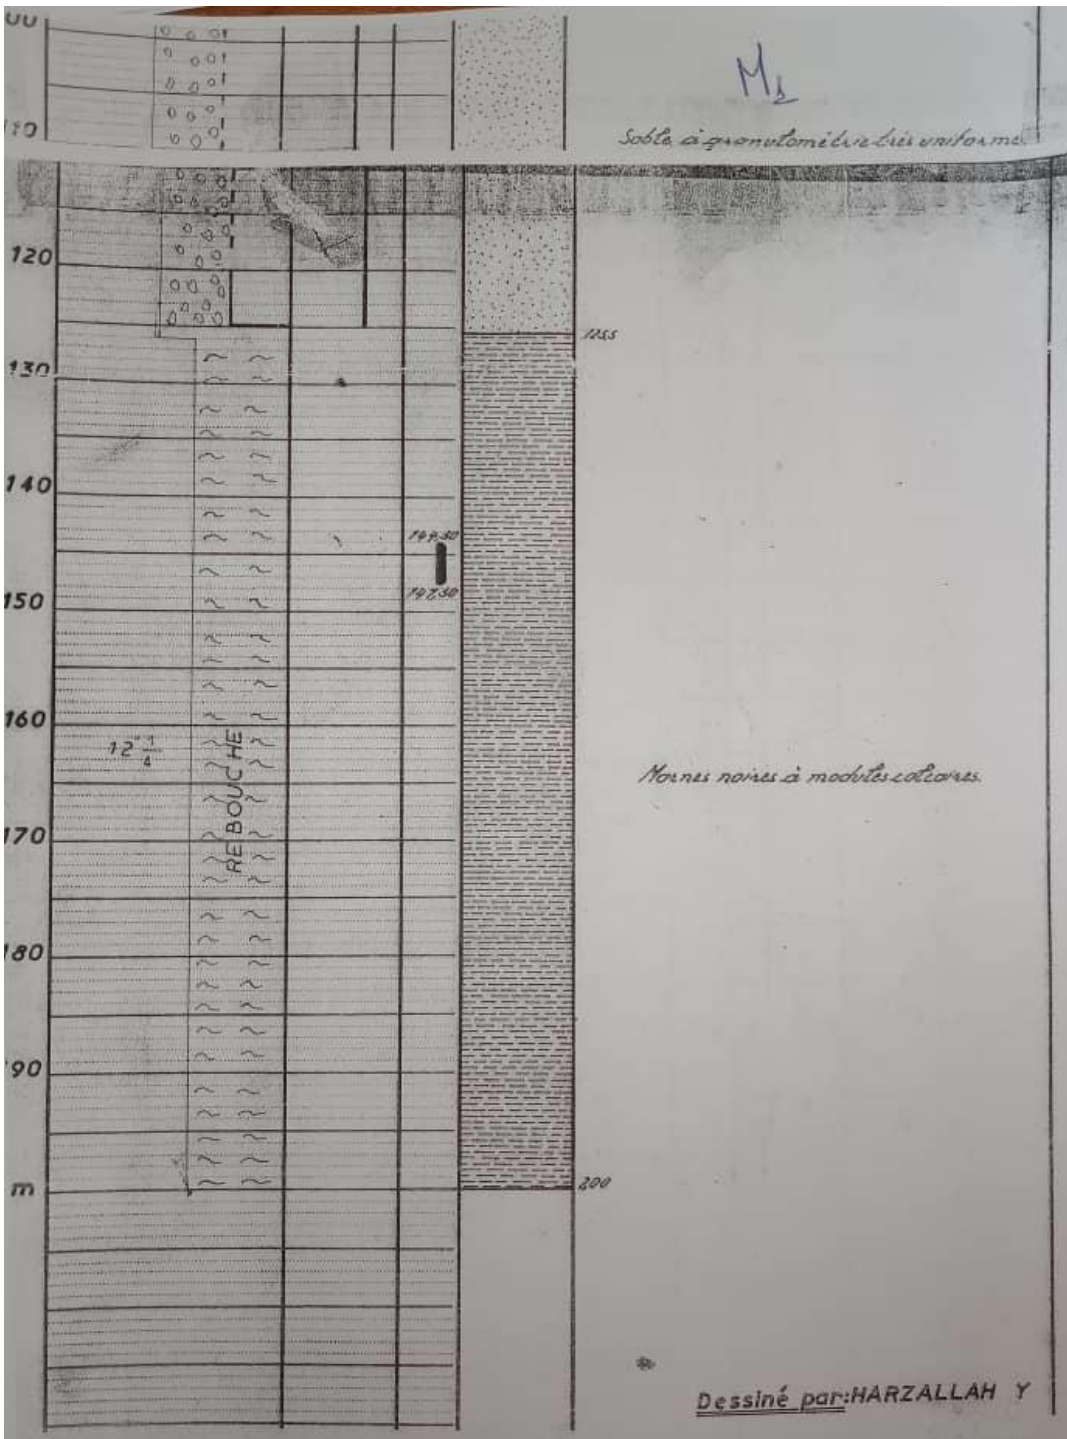 00
M
110
Sable à granulométrie très uniforme.
120
125,5
130
140
144,30
147,30
150
160
12" 1/4
REBOUCHE
Marnes noires à modules calcaires.
170
180
190
m
200
Dessiné par:HARZALLAH Y